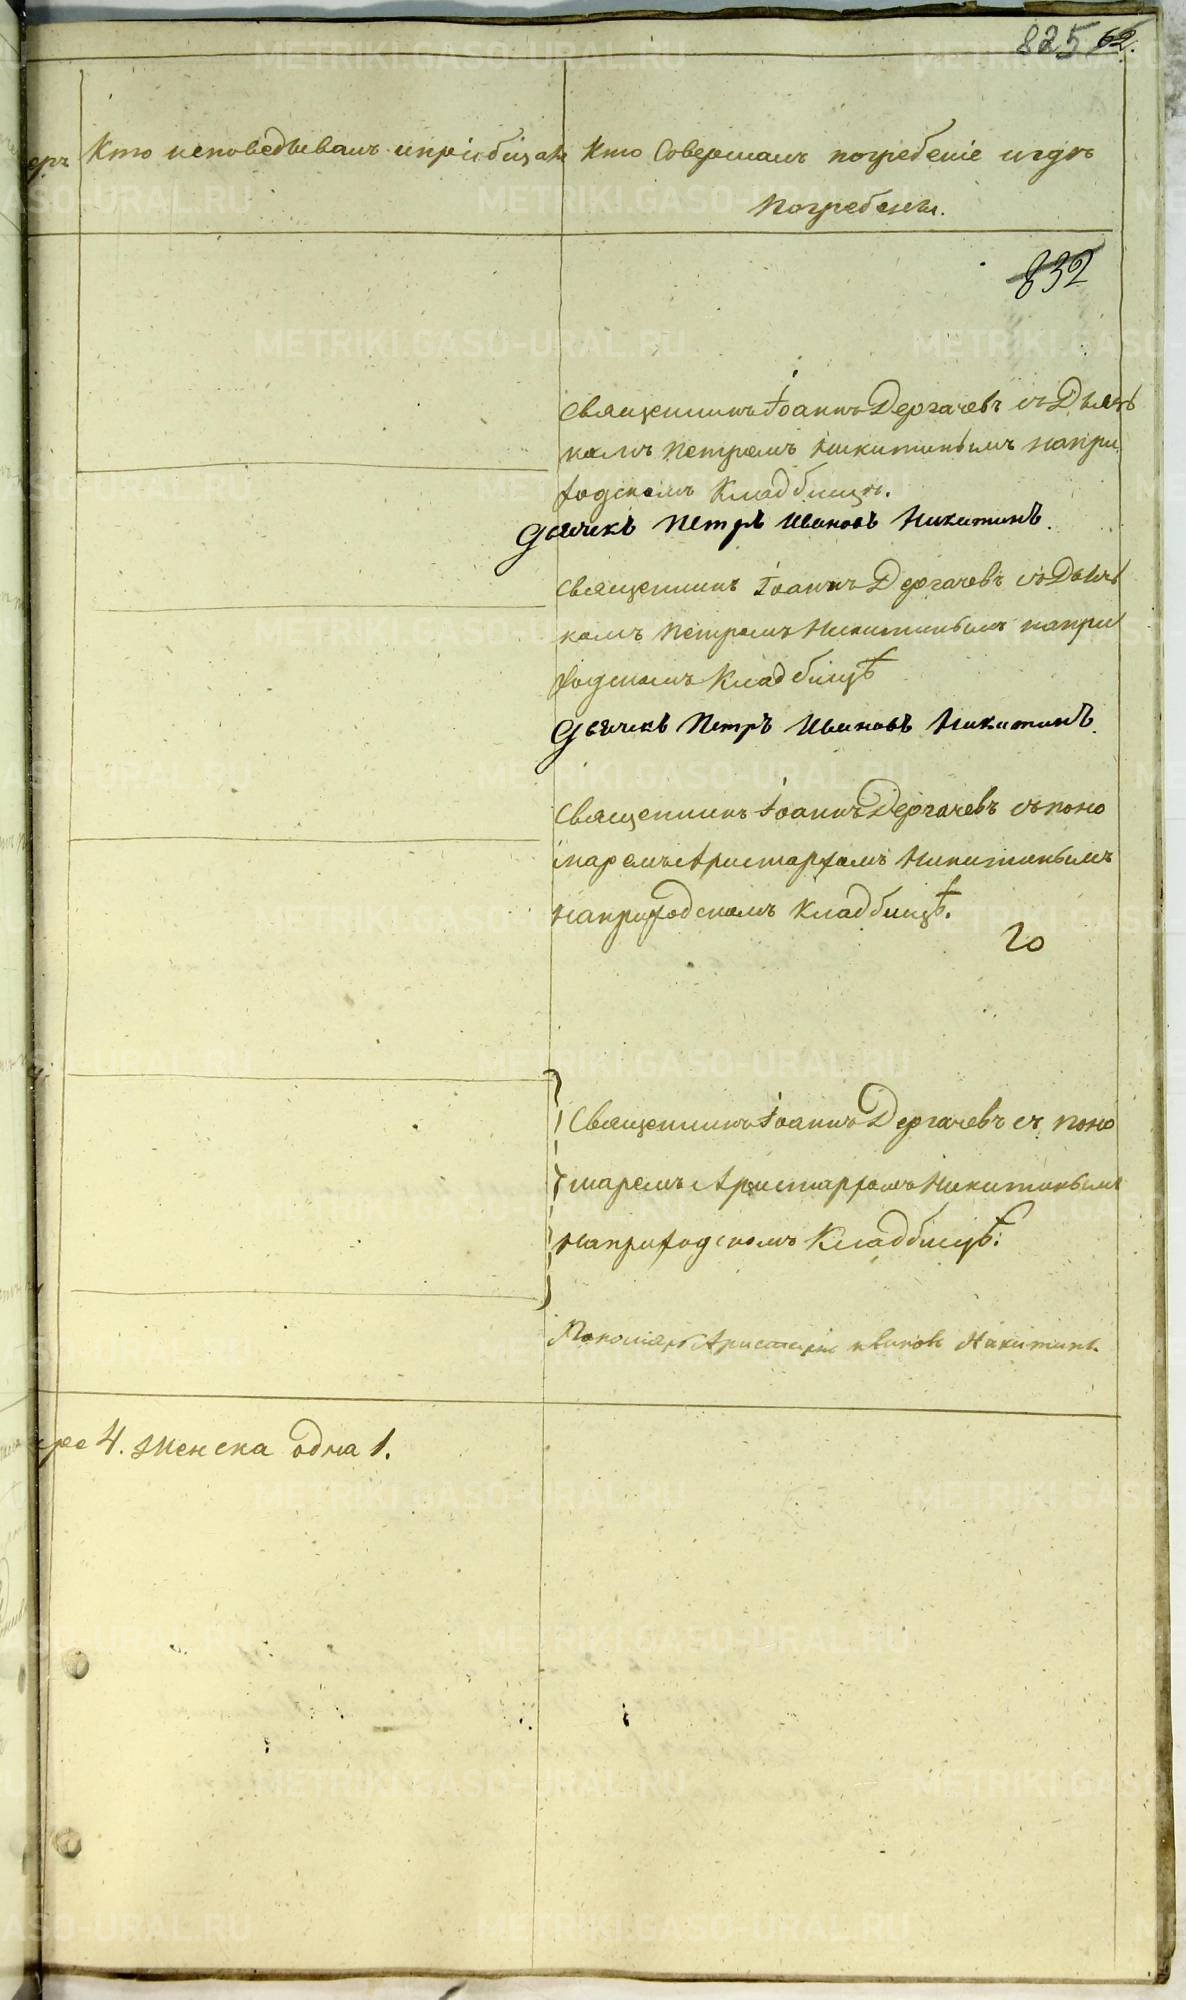 825 62.
Кто исповедывалъ ипріобщалъ
Кто Совершалъ погребеніе игдѣ
Погребены.
832
Священникъ Іоаннъ Дергачевъ съ Дьяч
комъ Петромъ Никитинымъ напри
ходскомъ Кладбищѣ.
Дьячекъ Петръ Ивановъ Никитинъ.
Священникъ Іоаннъ Дергачевъ съ Дьяч
комъ Петромъ Никитинымъ напри
ходскомъ Кладбищѣ
Дьячекъ Петръ Ивановъ Никитинъ.
Священникъ Іоаннъ Дергачевъ съ поно
маремъ Аристархомъ Никитинымъ
наприходскомъ Кладбищѣ.
Го
Священникъ Іоаннъ Дергачевъ съ поно
маремъ Аристархомъ Никитинымъ
наприходскомъ Кладбищѣ.
Пономарь Аристархъ Ивановъ Никитинъ.
4. Женска одна 1.
METRIKI.GASO-URAL.RU